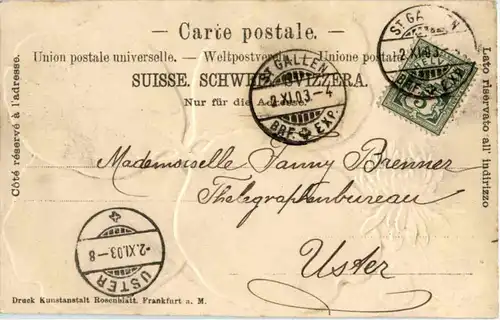 Carte postale.
Union postale universelle. — Weltpostverein. — Unione postale
SUISSE. SCHWEIZ. SVIZZERA.
Nur für die Adresse.
Côté réservé à l'adresse.
Lato riservato all' indirizzo
ST. GALLEN
2.XI.03.-4
BRF. EXP.
ST. GALLEN
2.XI.03.
BRF. EXP.
Mademoiselle Fanny Brenner
Thelegraphenbureau
Uster
-2.XI.03.-8
USTER
Druck Kunstanstalt Rosenblatt. Frankfurt a. M.